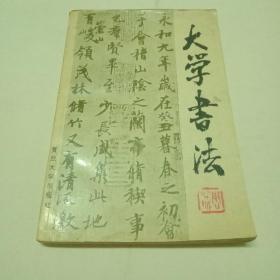 大学書法
永和九年歲在癸丑暮春之初會
于會稽山陰之蘭亭脩禊事
也羣賢畢至少長咸集此地
有崇山峻領茂林脩竹又有清流激
复旦大学出版社